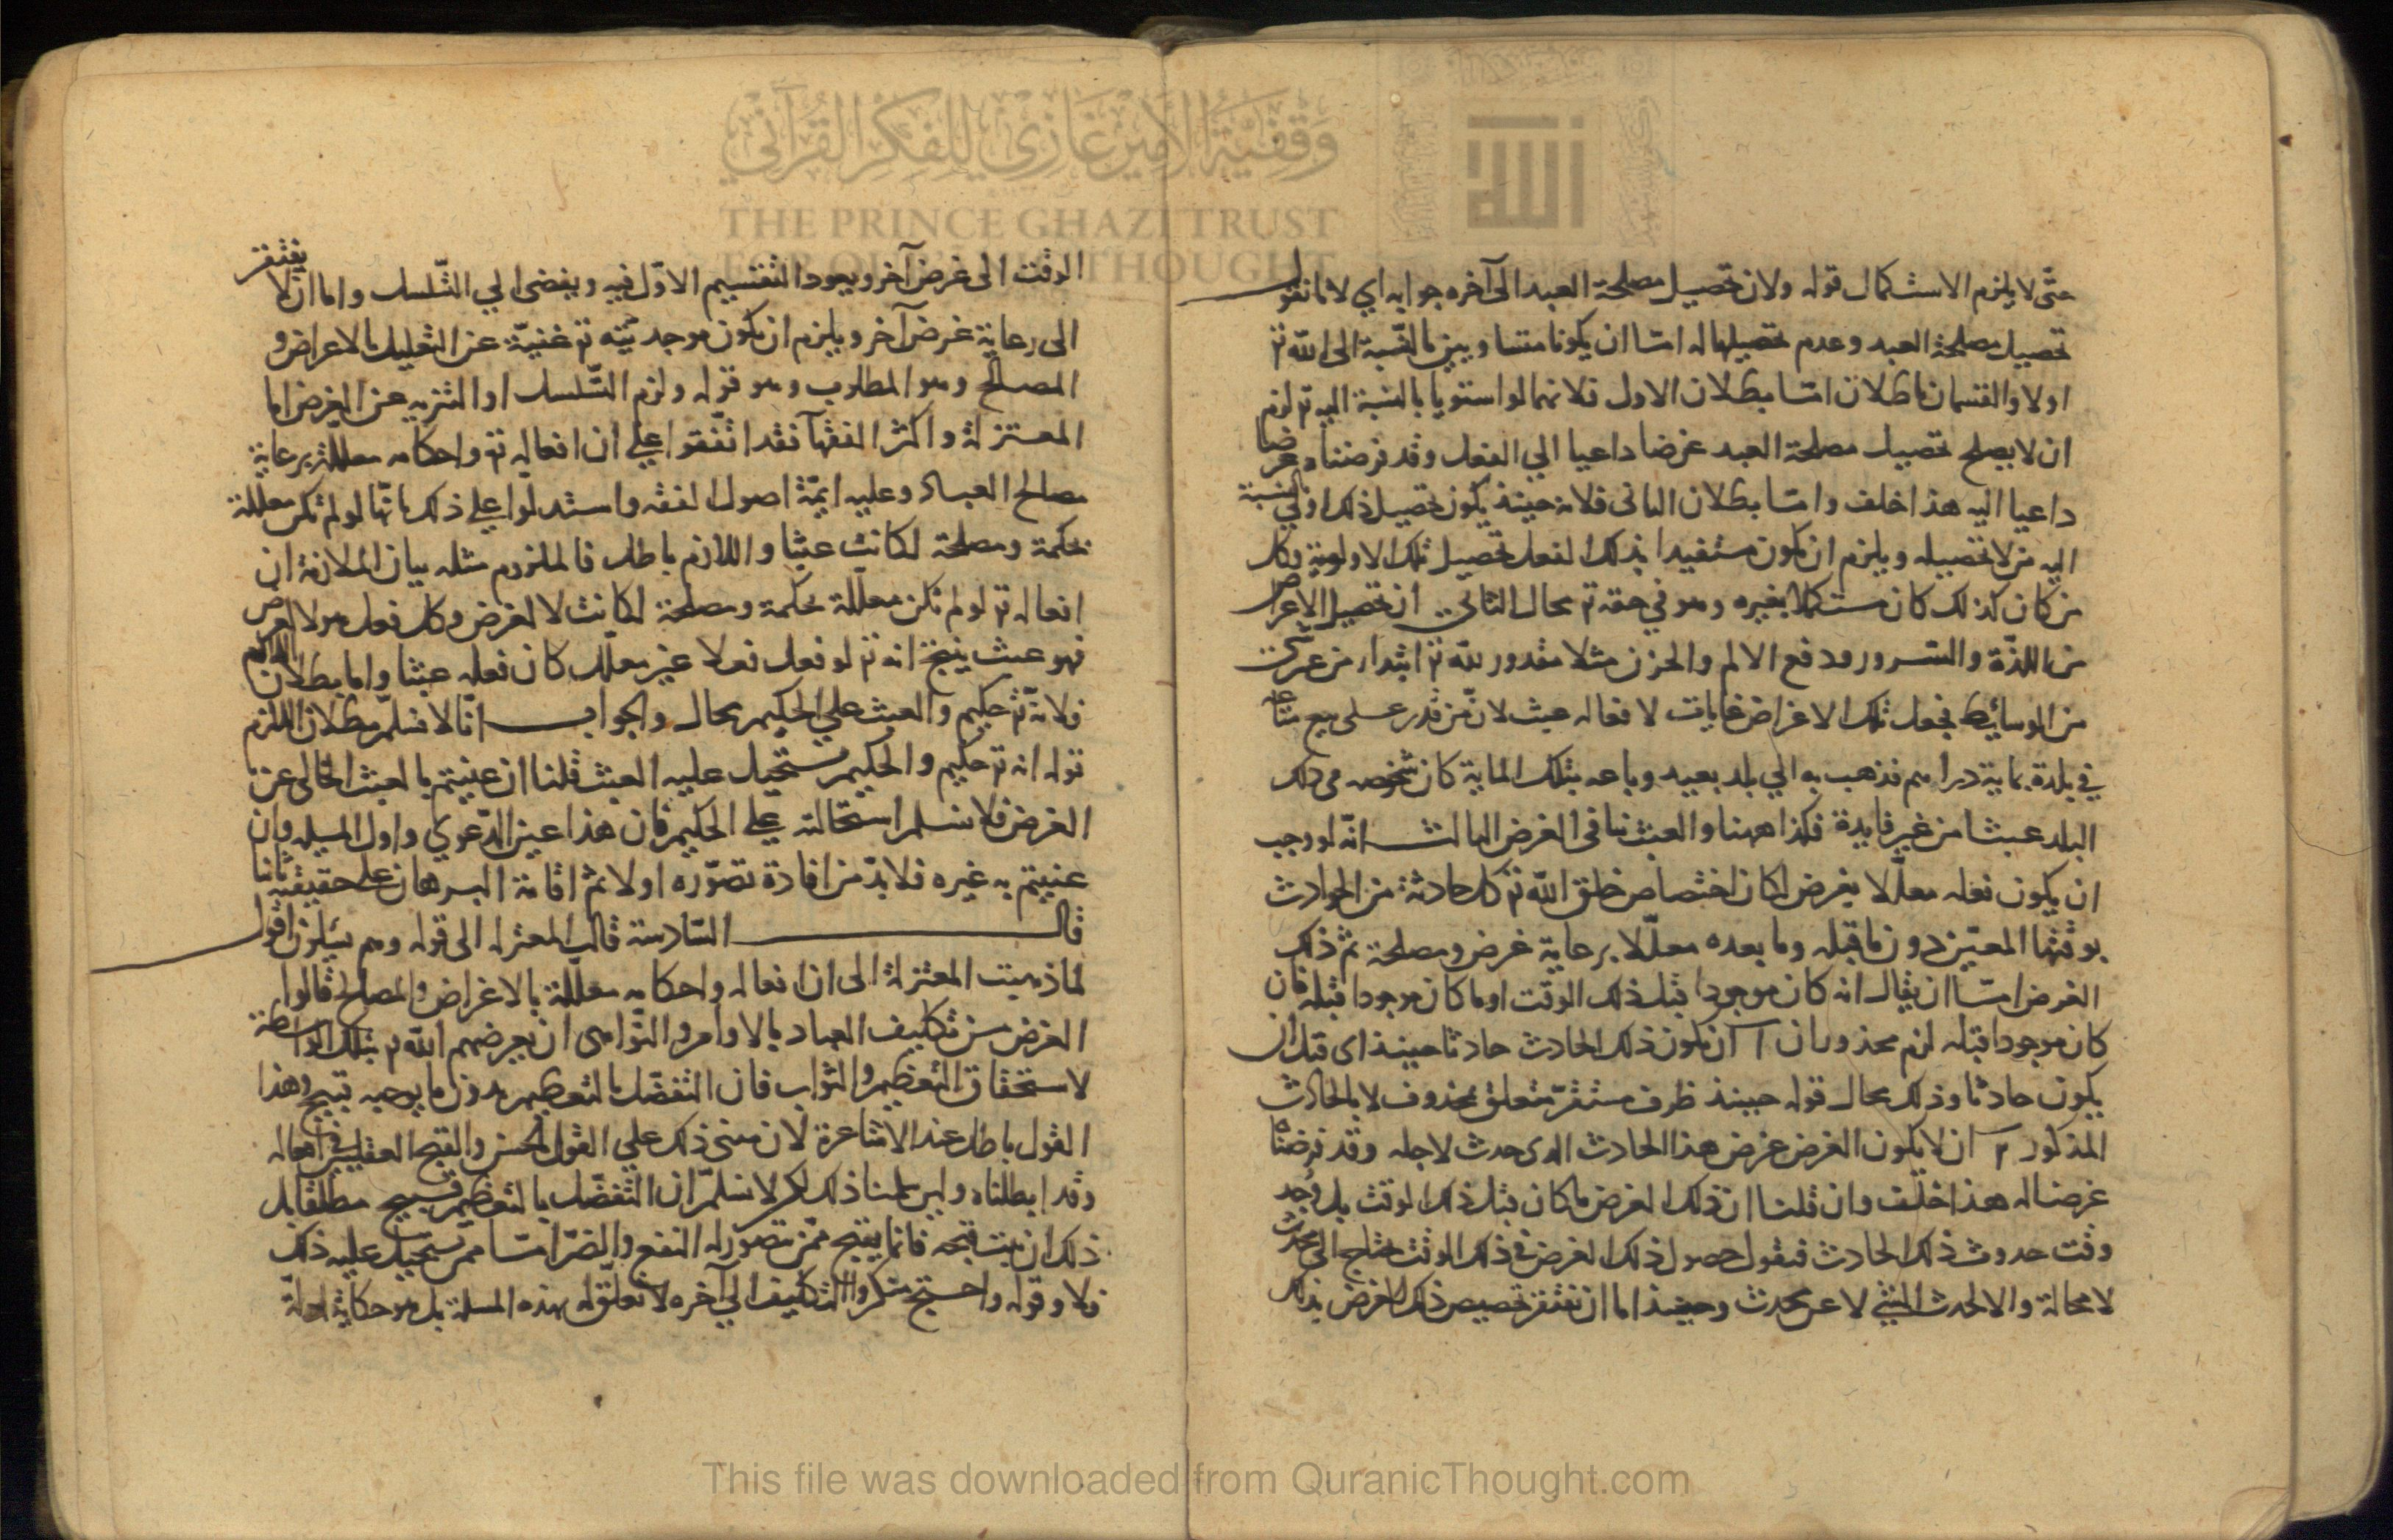 وقفية الأمير غازي للفكر القرآني
THE PRINCE GHAZI TRUST
FOR QUR'ANIC THOUGHT
الله
حتى لا يلزم الاستكمال قوله ولان تحصيل مصلحة العبد الى آخره جوابه اي لانا نقول
تحصيل مصلحة العبد وعدم تحصيلها له امّا ان يكونا متساويين بالنسبة الى الله تع
اولا والقسمان باطلان امّا بطلان الاول فلانهما لو استويا بالنسبة اليه تع لزم
ان لا يصلح تحصيل مصلحة العبد غرضا داعيا الي الفعل وقد فرضناه غرضا
داعيا اليه هذا خلف وامّا بطلان الثاني فلانه حينئذ يكون تحصيل ذلك اولي بالنسبة
اليه من لا تحصيله ويلزم ان يكون مستفيدا بذلك الفعل تحصيل تلك الاولوية وكل
من كان كذلك كان مستكملا بغيره وهو في حقه تع محال الثاني ان تحصيل الاغراض
من اللذّة والسّرور ودفع الالم والحزن مثلا مقدور لله تع ابتداء من غير شيء
من الوسائط فجعل تلك الاغراض غايات لافعاله عبث لانّ من قدر على بيع متاعه
في بلدة بماية دراهم فذهب به الي بلد بعيد وباعه بتلك الماية كان شخوصه من ذلك
البلد عبثا من غير فايدة فكذا ههنا والعبث ينافى الغرض الثالث انّه لو وجب
ان يكون فعله معلّلا بغرض لكان اختصاص خلق الله تع كل حادثة من الحوادث
بوقتها المعيّن دون ما قبله وما بعده معلّلا برعاية غرض ومصلحة ثمّ ذلك
الغرض امّا ان يقال انه كان موجودا قبل ذلك الوقت او ما كان موجودا قبله فان
كان موجودا قبله لزم محذوران ا ان يكون ذلك الحادث حادثا حينئذ اى قبل ان
يكون حادثا وذلك محال قوله حينئذ ظرف مستقرّ متعلق بمحذوف لا بالحادث
المذكور ٢ ان لا يكون الغرض غرض هذا الحادث الذى حدث لاجله وقد فرضناه
غرضا له هذا خلف وان قلنا ان ذلك الغرض ما كان قبل ذلك الوقت بل وجد
وقت حدوث ذلك الحادث فنقول حصول ذلك الغرض في ذلك الوقت يحتاج الى محدث
لا محالة والا لحدث الشيء لا عن محدث وحينئذ اما ان يفتقر تخصيص ذلك الغرض بذلك
الوقت الى غرض آخر ويعود التقسيم الاوّل فيه ويفضى الي التّسلسل واما ان لا يفتقر
الى رعاية غرض آخر ويلزم ان يكون موجديّته تع غنيّة عن التعليل بالاغراض و
المصالح وهو المطلوب وهو قوله ولزم التّسلسل او التنزيه عن الغرض اما
المعتزلة واكثر الفقهآ فقد اتّفقوا علي ان افعاله تع واحكامه معللة برعاية
مصالح العباد وعليه ايمّة اصول الفقه واستدلّوا علي ذلك بانّها لو لم تكن معللة
بحكمة ومصلحة لكانت عبثا واللازم باطل فالملزوم مثله بيان الملازمة ان
افعاله تع لو لم تكن معللة بحكمة ومصلحة لكانت لا لغرض وكل فعل هو لا لغرض
فهو عبث ينتج انه تع لو فعل فعلا غير معلّل كان فعله عبثا واما بطلان اللازم
فلانّه تع حكيم والعبث علي الحكيم محال والجواب انّا لا نسلم بطلان اللازم
قوله انه تع حكيم والحكيم يستحيل عليه العبث قلنا ان عنيتم بالعبث الخالى عن
الغرض فلا نسلم استحالته علي الحكيم فان هذا عين الدّعوي واول المسيله وان
عنيتم به غيره فلا بدّ من افادة تصوّره اولا ثم اقامة البرهان على حقيقته ثانيا
قال السّادسة قالت المعتزله الى قوله وهم يسئلون اقول
لما ذهبت المعتزلة الى ان افعاله واحكامه معلّلة بالاغراض والمصالح قالوا
الغرض من تكليف العباد بالاوامر والنّواهى ان يعرضهم الله تع بتلك الواسطة
لاستحقاق التعظيم والثواب فان التفضّل بالتعظيم بدون ما يوجبه قبيح وهذا
القول باطل عند الاشاعرة لان مبنى ذلك علي القول بالحسن والقبح العقليين في افعاله
وقد ابطلناه ولين سلمنا ذلك لكن لا نسلم ان التفضّل بالتعظيم قبيح مطلقا بل
ذلك ان ثبت قبحه فانما يقبح ممّن يتصوّر له النفع والضرّ امّا ممّن يستحيل عليه ذلك
فلا وقوله واحتج منكروا التكليف الى آخره لا تعلّق له بهذه المسلة بل هو حكاية ادلّة
This file was downloaded from QuranicThought.com